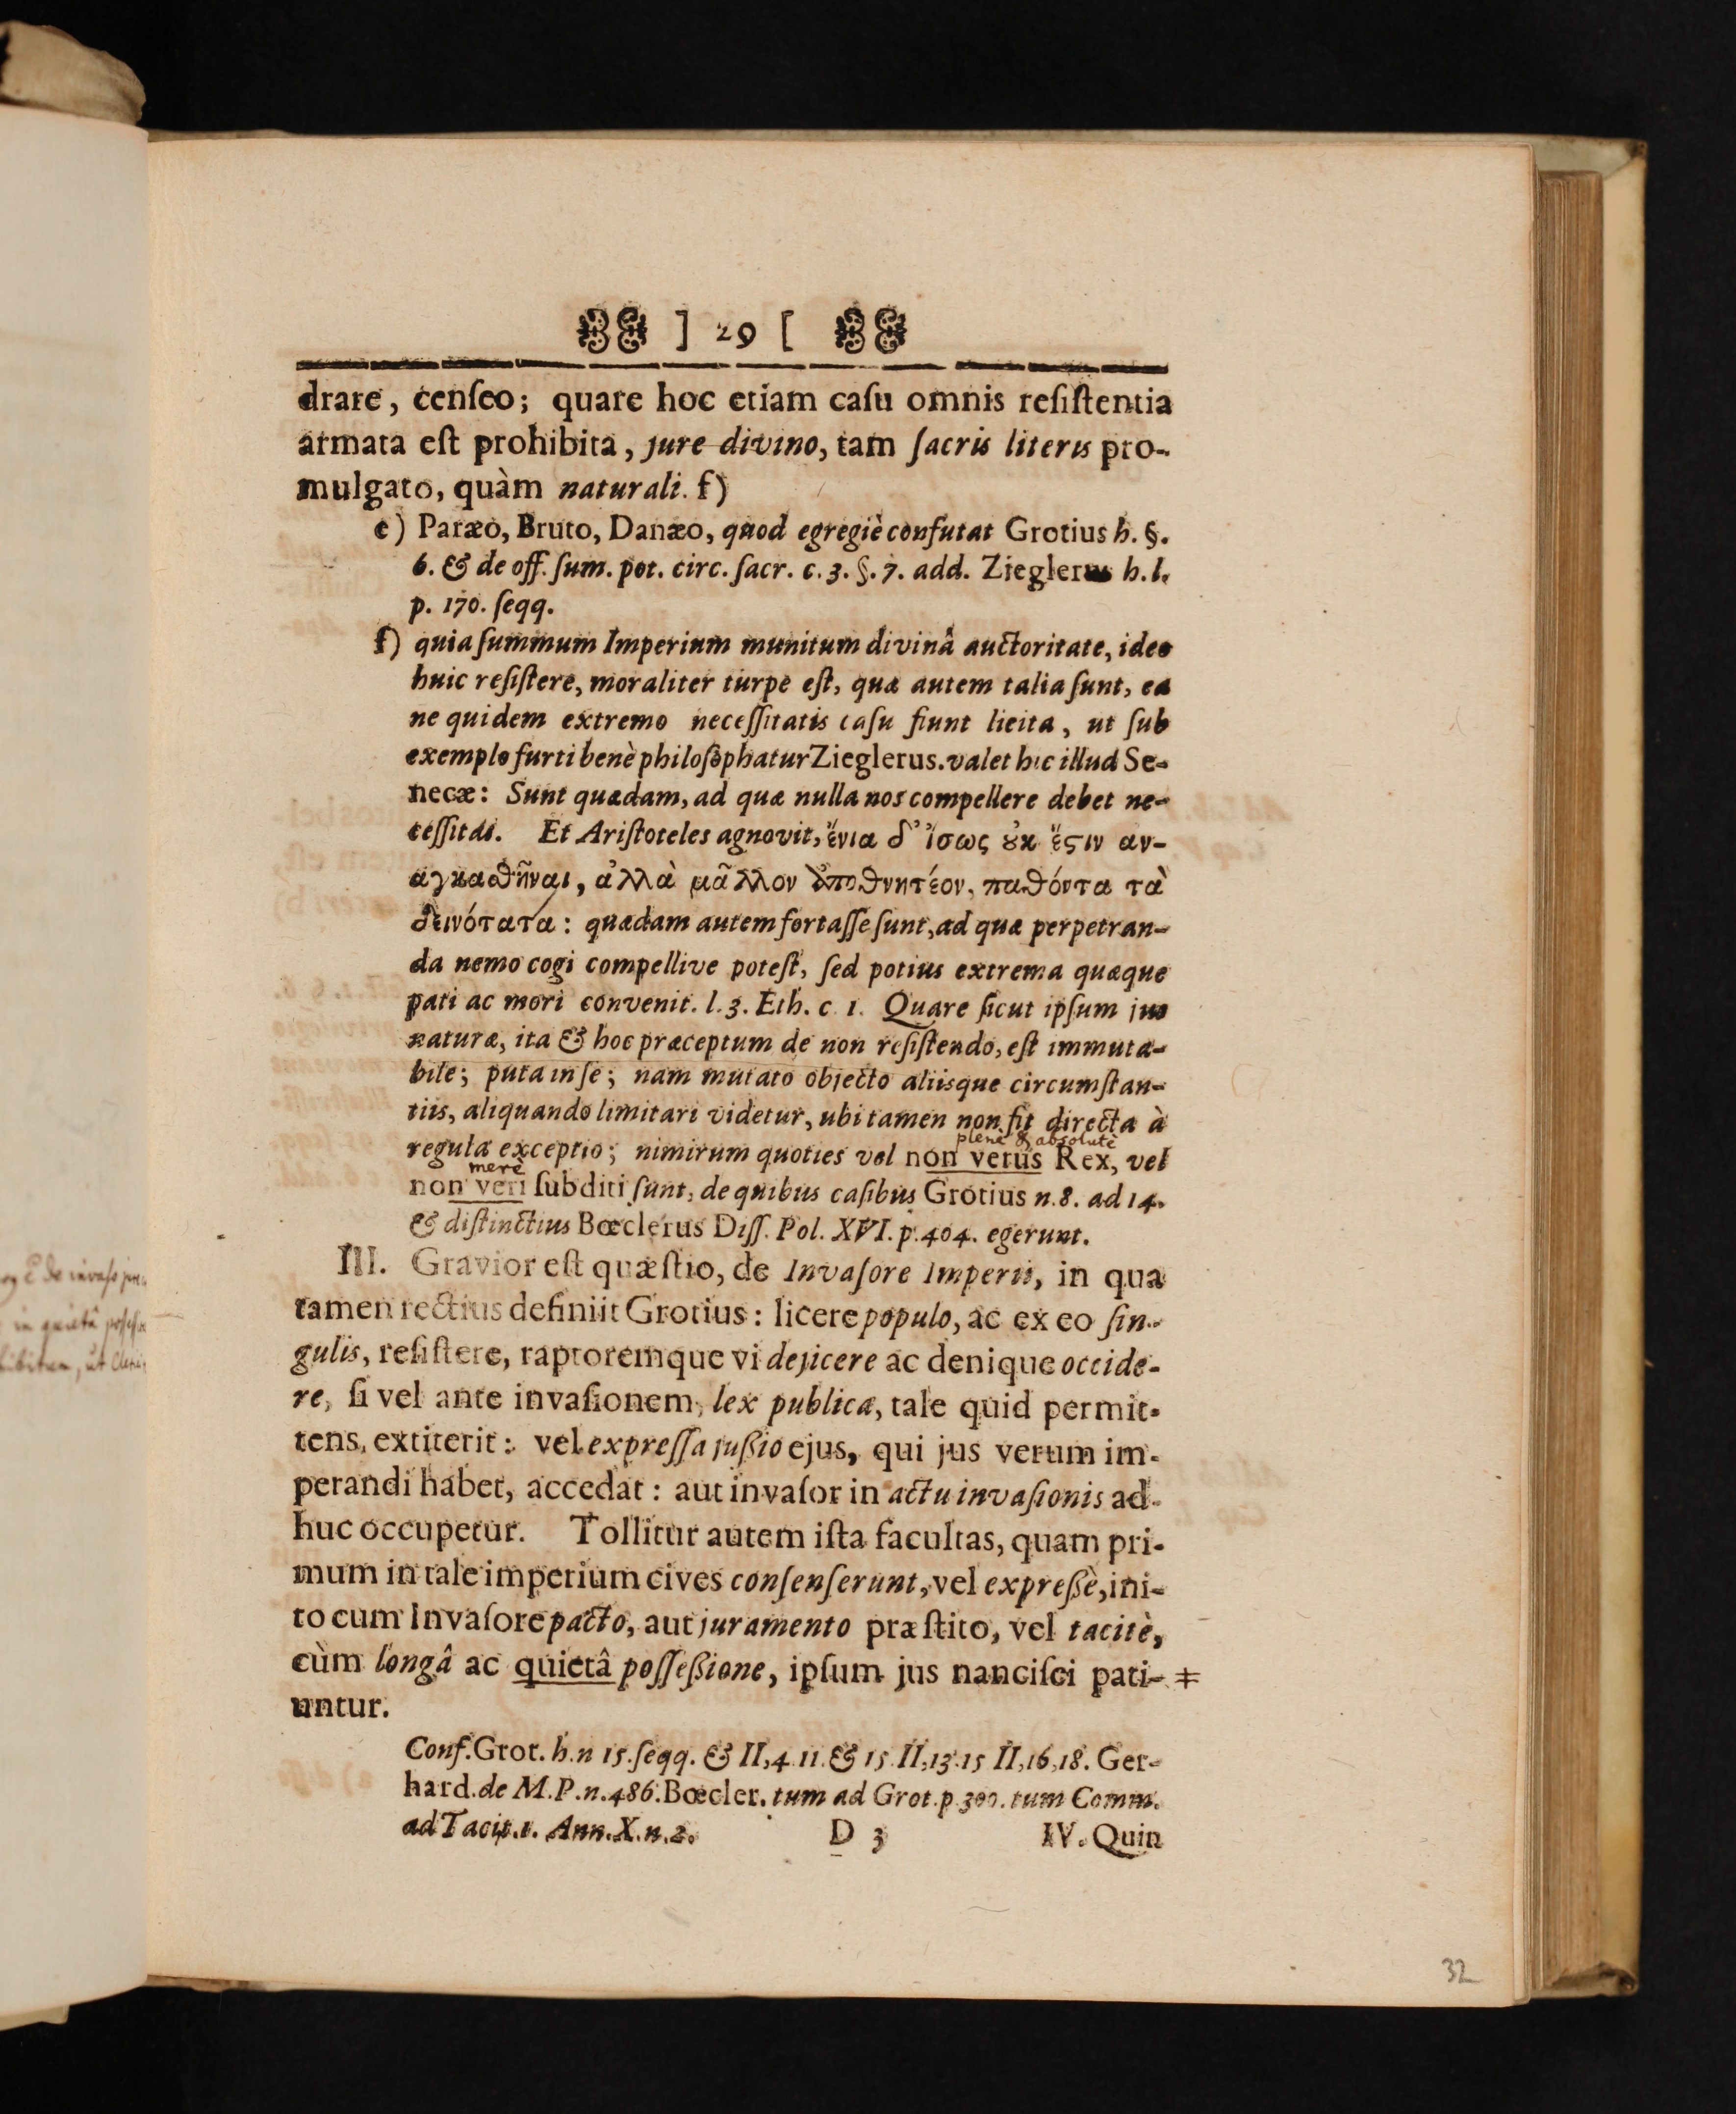 ] 29 [
drare, cenſeo; quare hoc etiam caſu omnis reſiſtentia
armata eſt prohibita, jure divino, tam ſacris literis pro-
mulgato, quàm naturali. f)
e) Paræo, Bruto, Danæo, quod egregiè confutat Grotius h. §.
6. & de off. ſum. pot. circ. ſacr. c. 3. §. 7. add. Zieglerus h. l.
p. 170. ſeqq.
f) quia ſummum Imperium munitum divinâ auctoritate, ideo
huic reſiſtere, moraliter turpe eſt, quæ autem talia ſunt, ea
ne quidem extremo neceſſitatis caſu fiunt licita, ut ſub
exemplo furti benè philoſophatur Zieglerus. valet hic illud Se-
necæ: Sunt quædam, ad quæ nulla nos compellere debet ne-
ceſſitas. Et Ariſtoteles agnovit, ἔνια δ' ἴσως ȣ̓κ ἔϛιν αν-
αγκαϲθῆναι, ἀλλὰ μᾶλλον ἀποθνητέον, παθόντα τὰ
δεινότατα: quædam autem fortaſſe ſunt, ad quæ perpetran-
da nemo cogi compellive poteſt, ſed potius extrema quæque
pati ac mori convenit. l. 3. Eth. c. 1. Quare ſicut ipſum jus
naturæ, ita & hoc præceptum de non reſiſtendo, eſt immuta-
bile; puta in ſe; nam mutato objecto aliisque circumſtan-
tiis, aliquando limitari videtur, ubi tamen non fit directa à
plenè & abſolutè
regula exceptio; nimirum quoties vel non verus Rex, vel
merè
non veri ſubditi ſunt, de quibus caſibus Grotius n. 8. ad 14.
& diſtinctius Bœclerus Diſſ. Pol. XVI. p. 404. egerunt.
III. Gravior eſt quæſtio, de Invaſore Imperii, in qua
tamen rectius definiit Grotius: licere populo, ac ex eo ſin-
gulis, reſiſtere, raptoremque vi dejicere ac denique occide-
re, ſi vel ante invaſionem, lex publica, tale quid permit-
tens, extiterit: vel expreſſa juſſio ejus, qui jus verum im-
perandi habet, accedat: aut invaſor in actu invaſionis ad-
huc occupetur. Tollitur autem iſta facultas, quam pri-
mum in tale imperium cives conſenſerunt, vel expreßè, ini-
to cum Invaſore pacto, aut juramento præſtito, vel tacitè,
cùm longâ ac quietâ poſſeßione, ipſum jus nanciſci pati- ‡
untur.
Conf. Grot. h. n 15. ſeqq. & II, 4. 11. & 15 II, 13. 15 II, 16, 18. Ger-
hard. de M. P. n. 486. Bœcler. tum ad Grot. p. 300. tum Comm.
ad Tacit. 1. Ann. X. n. 2. D 3 IV. Quin
32